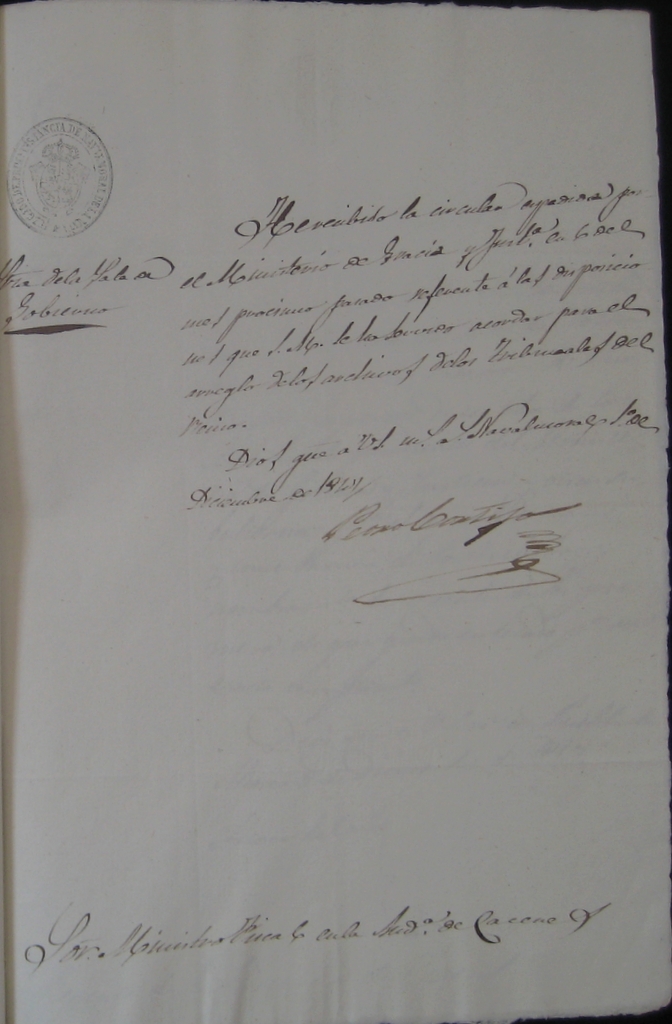 JUZGADO DE PRIMERA INSTANCIA DE NAVALMORAL DE LA MATA
Sria. de la Sala de
Gobierno
He recibido la circular expedida por
el Ministerio de Gracia y Justª. en 6 del
mes procsimo pasado referente á las disposicio
nes que S. M. se ha servido acordar para el
arreglo de los archivos de los Tribunales del
Reino.
Dios gue. a VS. m. a. Navalmoral 1º de
Diciembre de 1844
Pedro Cortijo
Sor. Ministro Fiscal en la Audª. de Caceres